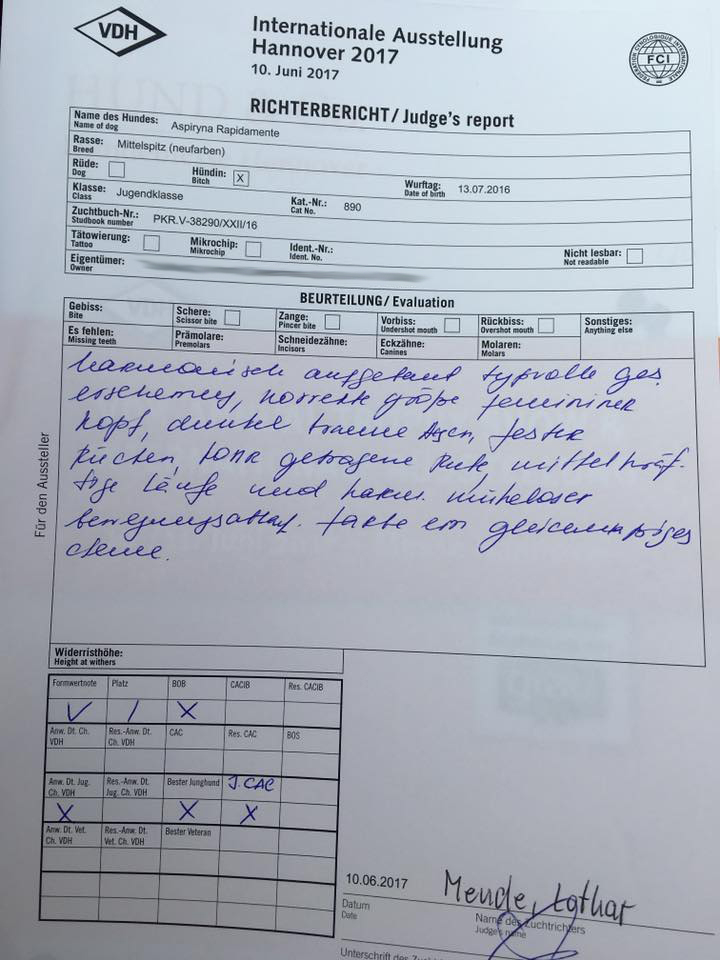 VDH
Internationale Ausstellung
Hannover 2017
10. Juni 2017
FCI
RICHTERBERICHT/Judge's report
Name des Hundes: Aspiryna Rapidamente
Name of dog
Rasse: Mittelspitz (neufarben)
Breed
Rüde: Hündin: X Wurftag: 13.07.2016
Dog Bitch Date of birth
Klasse: Jugendklasse Kat.-Nr.: 890
Class Cat No.
Zuchtbuch-Nr.: PKR.V-38290/XXII/16
Studbook number
Tätowierung: Mikrochip: Ident.-Nr.: Nicht lesbar:
Tattoo Mikrochip Ident. No. Not readable
Eigentümer:
Owner
BEURTEILUNG/Evaluation
Gebiss: Schere: Zange: Vorbiss: Rückbiss: Sonstiges:
Bite Scissor bite Pincer bite Undershot mouth Overshot mouth Anything else
Es fehlen: Prämolare: Schneidezähne: Eckzähne: Molaren:
Missing teeth Premolars Incisors Canines Molars
harmonisch aufgebaut typvolle ges.
korrekte größe femininer
Kopf, dunkel fester
Rücken getragene Rute, mittelkräf-
tige Läufe und harm. müheloser
farbe ein
creme.
Für den Aussteller
Widerristhöhe:
Height at withers
Formwertnote Platz BOB CACIB Res. CACIB
V 1 X
Anw. Dt. Ch. VDH Res.-Anw. Dt. Ch. VDH CAC Res. CAC BOS
Anw. Dt. Jug. Ch. VDH Res.-Anw. Dt. Jug. Ch. VDH Bester Junghund J.CAC
X X X
Anw. Dt. Vet. Ch. VDH Res.-Anw. Dt. Vet. Ch. VDH Bester Veteran
10.06.2017 Mende, Lothar
Datum Name des Zuchtrichters
Date Judge's name